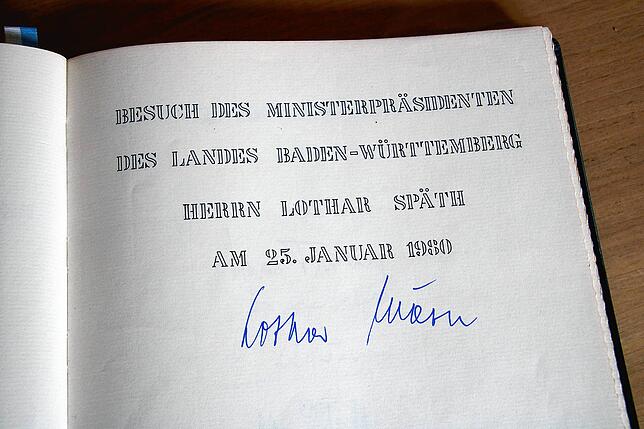 BESUCH DES MINISTERPRÄSIDENTEN
DES LANDES BADEN-WÜRTTEMBERG
HERRN LOTHAR SPÄTH
AM 25. JANUAR 1980
Lothar